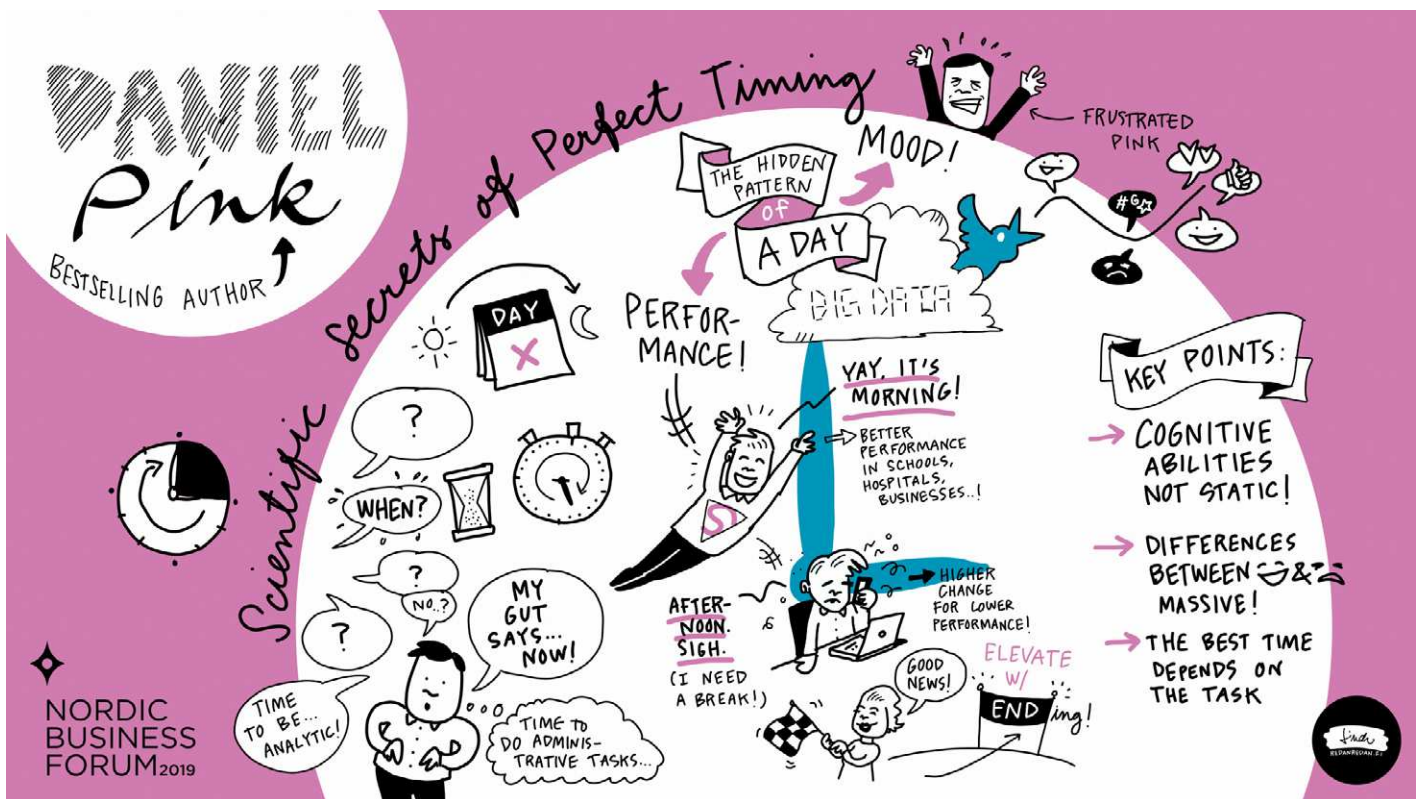 DANIEL
Pink
BESTSELLING AUTHOR
Scientific secrets of Perfect Timing
THE HIDDEN
PATTERN
OF
A DAY
MOOD!
FRUSTRATED
PINK
#G
BIG DATA
PERFOR-
MANCE!
DAY
X
?
WHEN?
?
NO..?
?
MY
GUT
SAYS...
NOW!
TIME
TO BE...
ANALYTIC!
TIME TO
DO ADMINIS-
TRATIVE TASKS...
YAY, IT'S
MORNING!
BETTER
PERFORMANCE
IN SCHOOLS,
HOSPITALS,
BUSINESSES..!
S
AFTER-
NOON.
SIGH.
(I NEED
A BREAK!)
HIGHER
CHANGE
FOR LOWER
PERFORMANCE!
GOOD
NEWS!
ELEVATE
W/
END ing!
KEY POINTS:
COGNITIVE
ABILITIES
NOT STATIC!
DIFFERENCES
BETWEEN &
MASSIVE!
THE BEST TIME
DEPENDS ON
THE TASK
NORDIC
BUSINESS
FORUM 2019